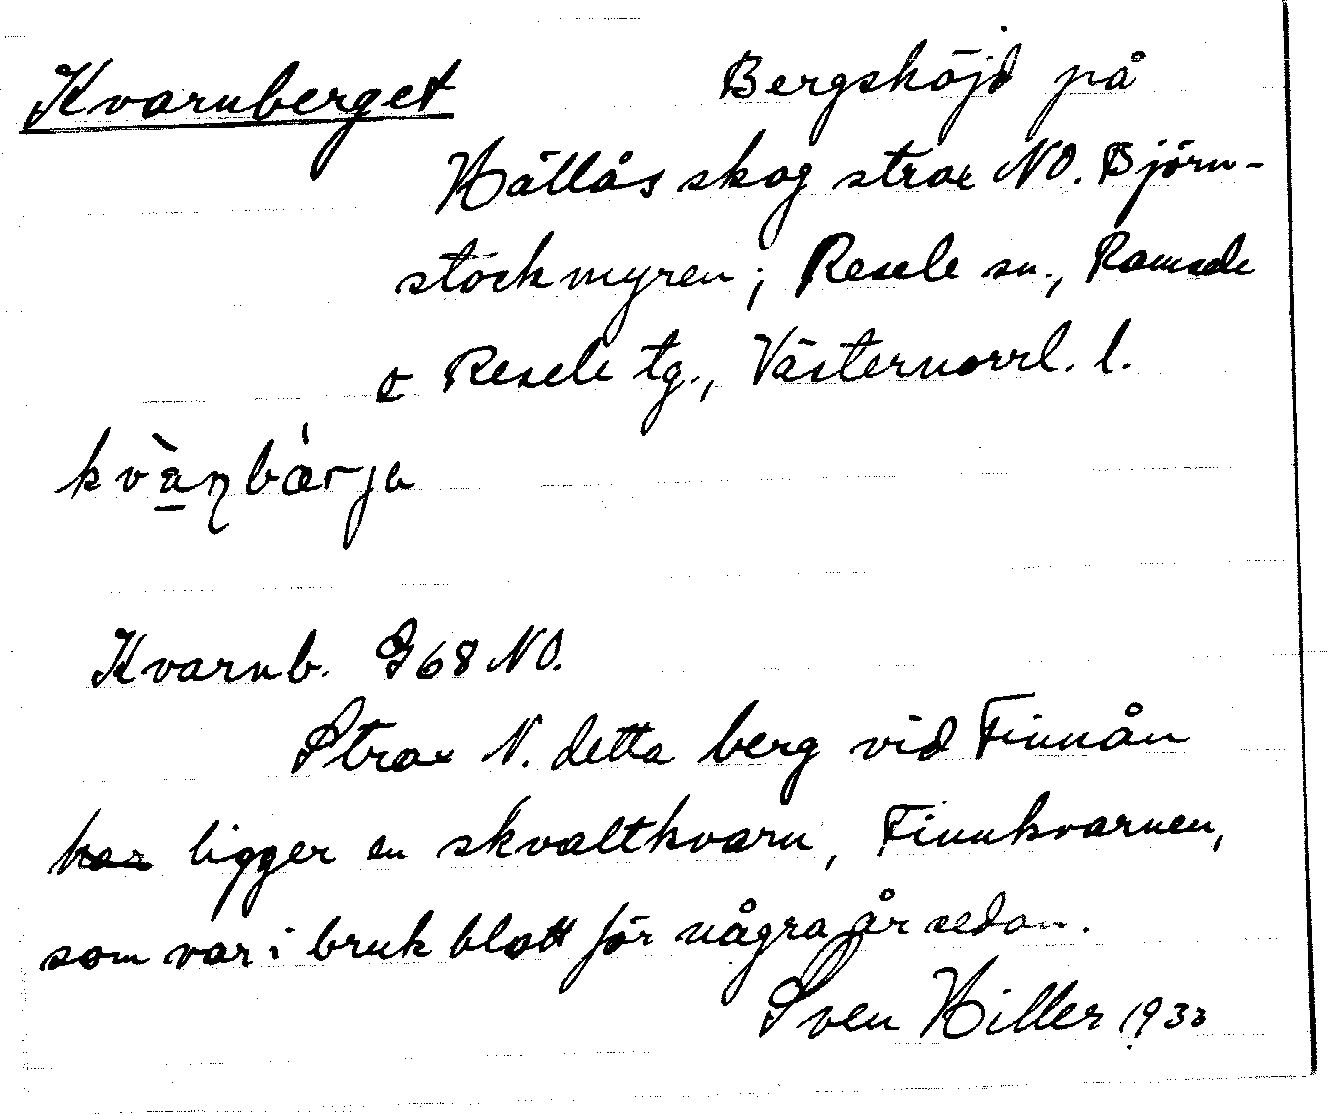 Kvarnberget Bergshöjd på
Hällås skog strax NO. Björn-
stockmyren; Resele sn., Ramsele
o Resele tg., Västernorrl. l.
kvàṇbárja
Kvarnb. G68 NO.
Strax N. detta berg vid Finnån
har ligger en skvaltkvarn, Finnkvarnen,
som var i bruk blott för några år sedan.
Sven Hiller 1933